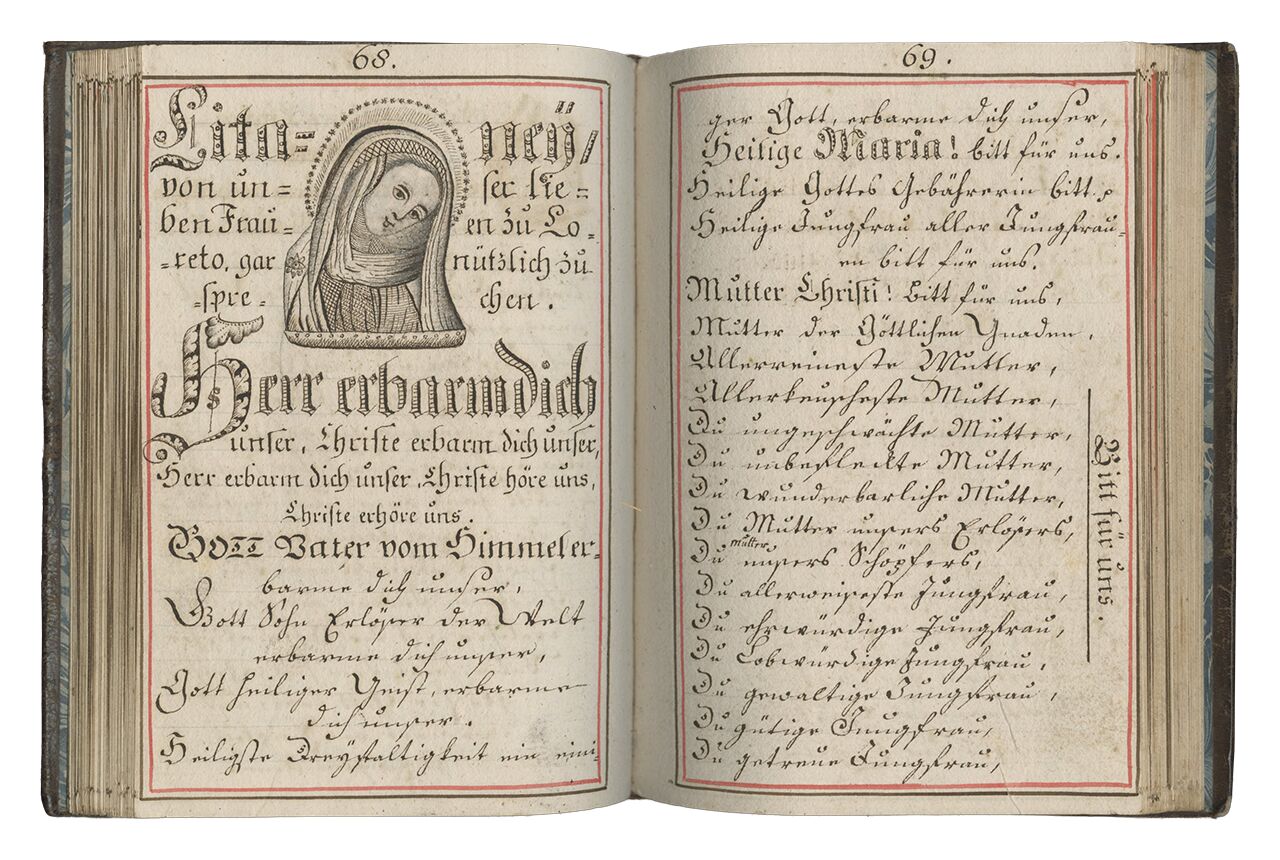 68.
Lita= neÿ,
von un= ser lie=
ben Frau= en zu Lo=
=reto, gar nützlich zu
=spre= chen.
Herr erbarm dich
unser, Christe erbarm dich unser,
Herr erbarm dich unser, Christe höre uns,
Christe erhöre uns.
GOTT Vater vom Himmel er=
barme dich unser,
Gott Sohn Erlöser der Welt
erbarme dich unser,
Gott heiliger Geist, erbarme
dich unser.
Heiligste Dreyfaltigkeit ein eini=
69.
ger Gott, erbarme dich unser,
Heilige Maria! bitt für uns.
Heilige Gottes Gebährerin bitt p
Heilige Jungfrau aller Jungfrau=
en bitt für uns.
Mutter Christi! bitt für uns,
Mutter der Göttlichen Gnaden,
Allerreineste Mutter,
Allerkeuscheste Mutter,
Du ungeschwächte Mutter,
Du unbefleckte Mutter,
Du wunderbarliche Mutter,
Du Mutter unsers Erlösers,
Du Mutter unsers Schöpfers,
Du allerweiseste Jungfrau,
Du ehrwürdige Jungfrau,
Du Lobwürdige Jungfrau,
Du gewaltige Jungfrau,
Du gütige Jungfrau,
Du getreue Jungfrau,
Bitt für uns.